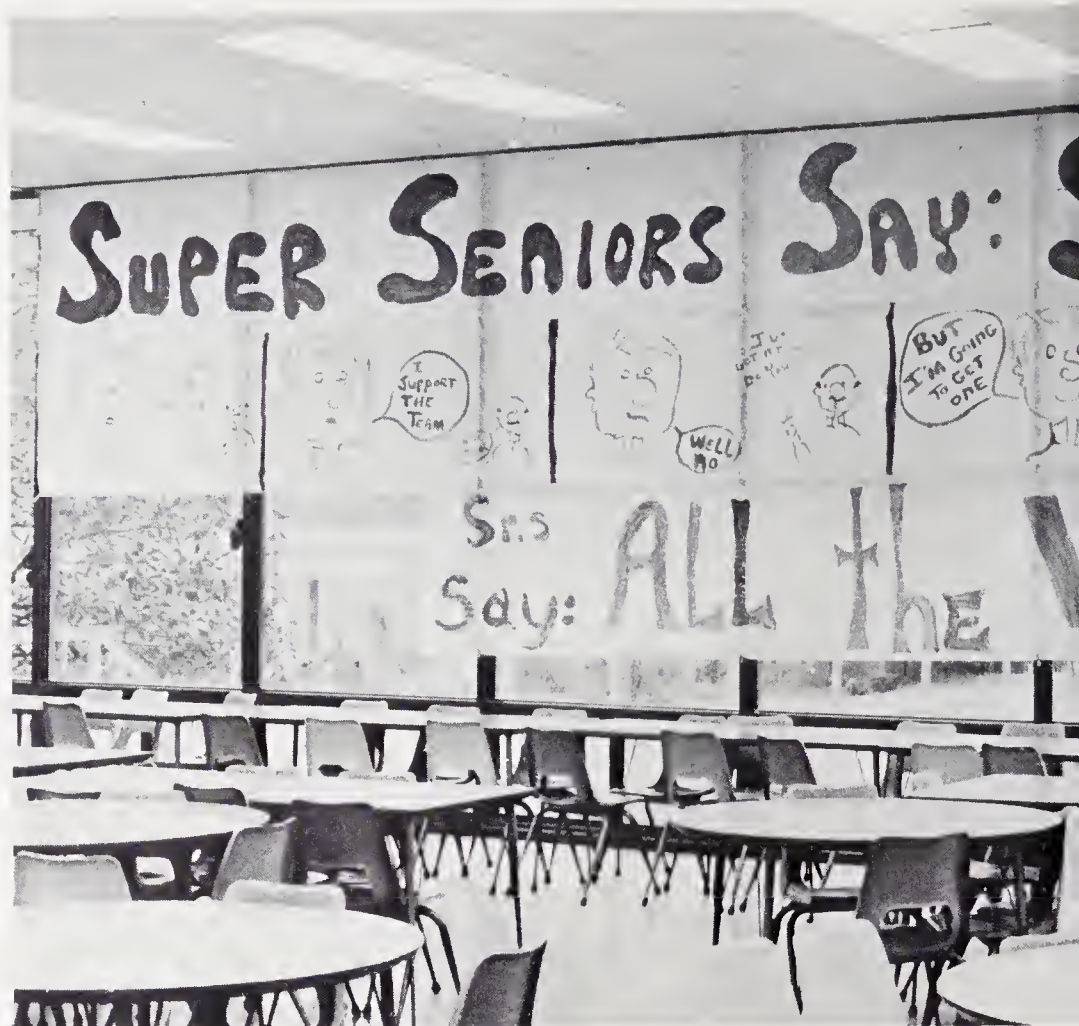 SUPER SENIORS SAY: S
I
SUPPORT
THE
TEAM
WELL
NO
BUT
I'M GOING
TO GET
ONE
Srs
Say: ALL the